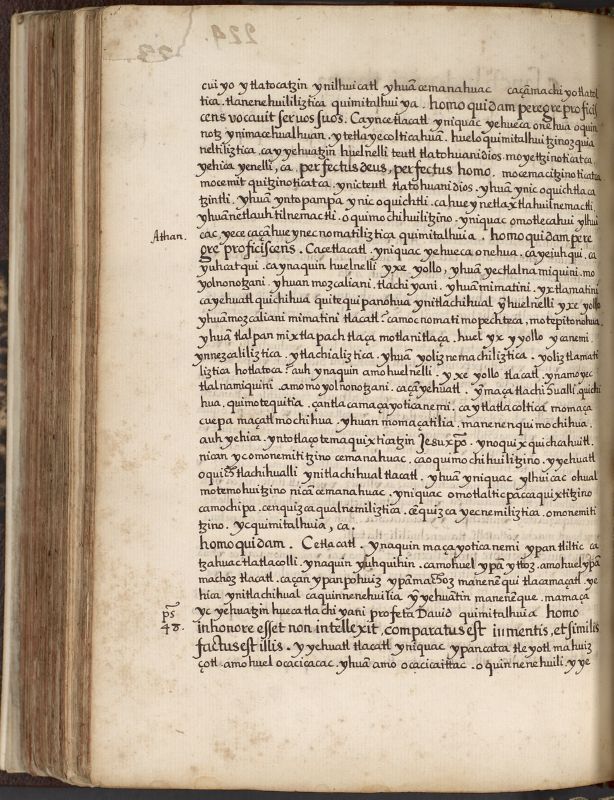 cui yo ytlatocatzin ynilhuicatl yhuā cemanahuac caçāmachi yotlatol
tica. tlanenehuililiztica quimitalhui ya. homo quidam peregre proficis
cens vocavit servos suos. Ca yn ce tlacatl yniquac yehueca onehua oquin
notz ynimacehualhuan. ytetlayecolticahuā. huelo quimitalhuitzinozquia
neltiliztica. ca yyehuatzin huelnelli teutl tlatohuani dios. moyetzinoticatca
yehica yenelli, ca, perfectus deus, perfectus homo. mocemacitzinoticatca
mocemit quitzinoticatca. ynicteutl tlatohuani dios. yhuā ynic oquichtla ca
tzintli. yhuā ynto pampa ynic oquichtli. cahuey netlaxtlahuilnemactli,
yhuā netlauhtilnemactli. o quimochihuilitzino. yniquac omotlecahui ylhui
Athan. cac, yece caçā huey necnomatiliztica quimitalhuia. homo quidam pere
gre proficiscens. Ca ce tlacatl. yniquac yehueca onehua, ca yeiuhqui. ca
yuhcatqui. ca ynaquin huelnelli yxe yollo, yhuā yectlalnamiquini. mo
yolnonotzani. yhuan mozcaliani. tlachiyani. yhuā mimatini. yxtlamatini
ca yehuatl quichihua quitequipanohua ynitlachihual yhuelnelli yxe yollo
yhuā mozcaliani mimatini tlacatl? camo cnomati mopechteca, motepitonohua.
yhuā tlalpan mixtlapachtlaça motlanitlaça, huel yx yyollo ycanemi.
ynnezcaliliztica. ytlachializtica. yhuā yoliznemachiliztica. yoliztlamati
liztica hotlatoca? auh ynaquin amo huelnelli. yxe yollo tlacatl. ynamo yec
tlalnamiquini. amo moyolnonotzani. caçā yehuatl. ymaçatlachihualli, quichi
hua, quimotequitia. çan tlacamaçayoticanemi. ca ytlatlacoltica momaça
cuepa maçatl mochihua. yhuan momaçatilia. manenenqui mochihua.
auh yehica. yntotlaçotemaquixticatzin Jesu xp̄o. ynoquixquichcahuitl.
nican ycomonemititzino cemanahuac. ca oquimochihuilitzino. yyehuatl
oquichtlachihualli ynitlachihual tlacatl. yhuā yniquac ylhuicac ohual
motemohuitzino nicā cemanahuac. yniquac omotlaltic pacaquixtitzino
camochipa. cenquizca qualnemiliztica. cēquizca yecnemiliztica. omonemiti
tzino. ycquimitalhuia, ca.
homo quidam. Ce tlacatl. ynaquin maçayoticanemi ypan tliltic ca
tzahuac tlatlacolli. ynaquin yuhquihin. camo huel ypā yttoz. amo huel ypā
machoz tlacatl. caçan ypanpohuiz ypā machoz manenēqui tlacamaçatl. ye
hica ynitlachihual caquinnenehuilia yyehuātin manenēque. mamaça
ps̄ 48. yc yehuatzin hueca tlachiyani profeta David quimitalhuia homo
in honore esset non intellexit, comparatus est iumentis, et similis
factus est illis. yyehuatl tlacatl yniquac ypancatca tleyotl mahuiz
çotl. amo huel ocacicacac. yhuā amo ocacicaittac. o quinnenehuili. yye